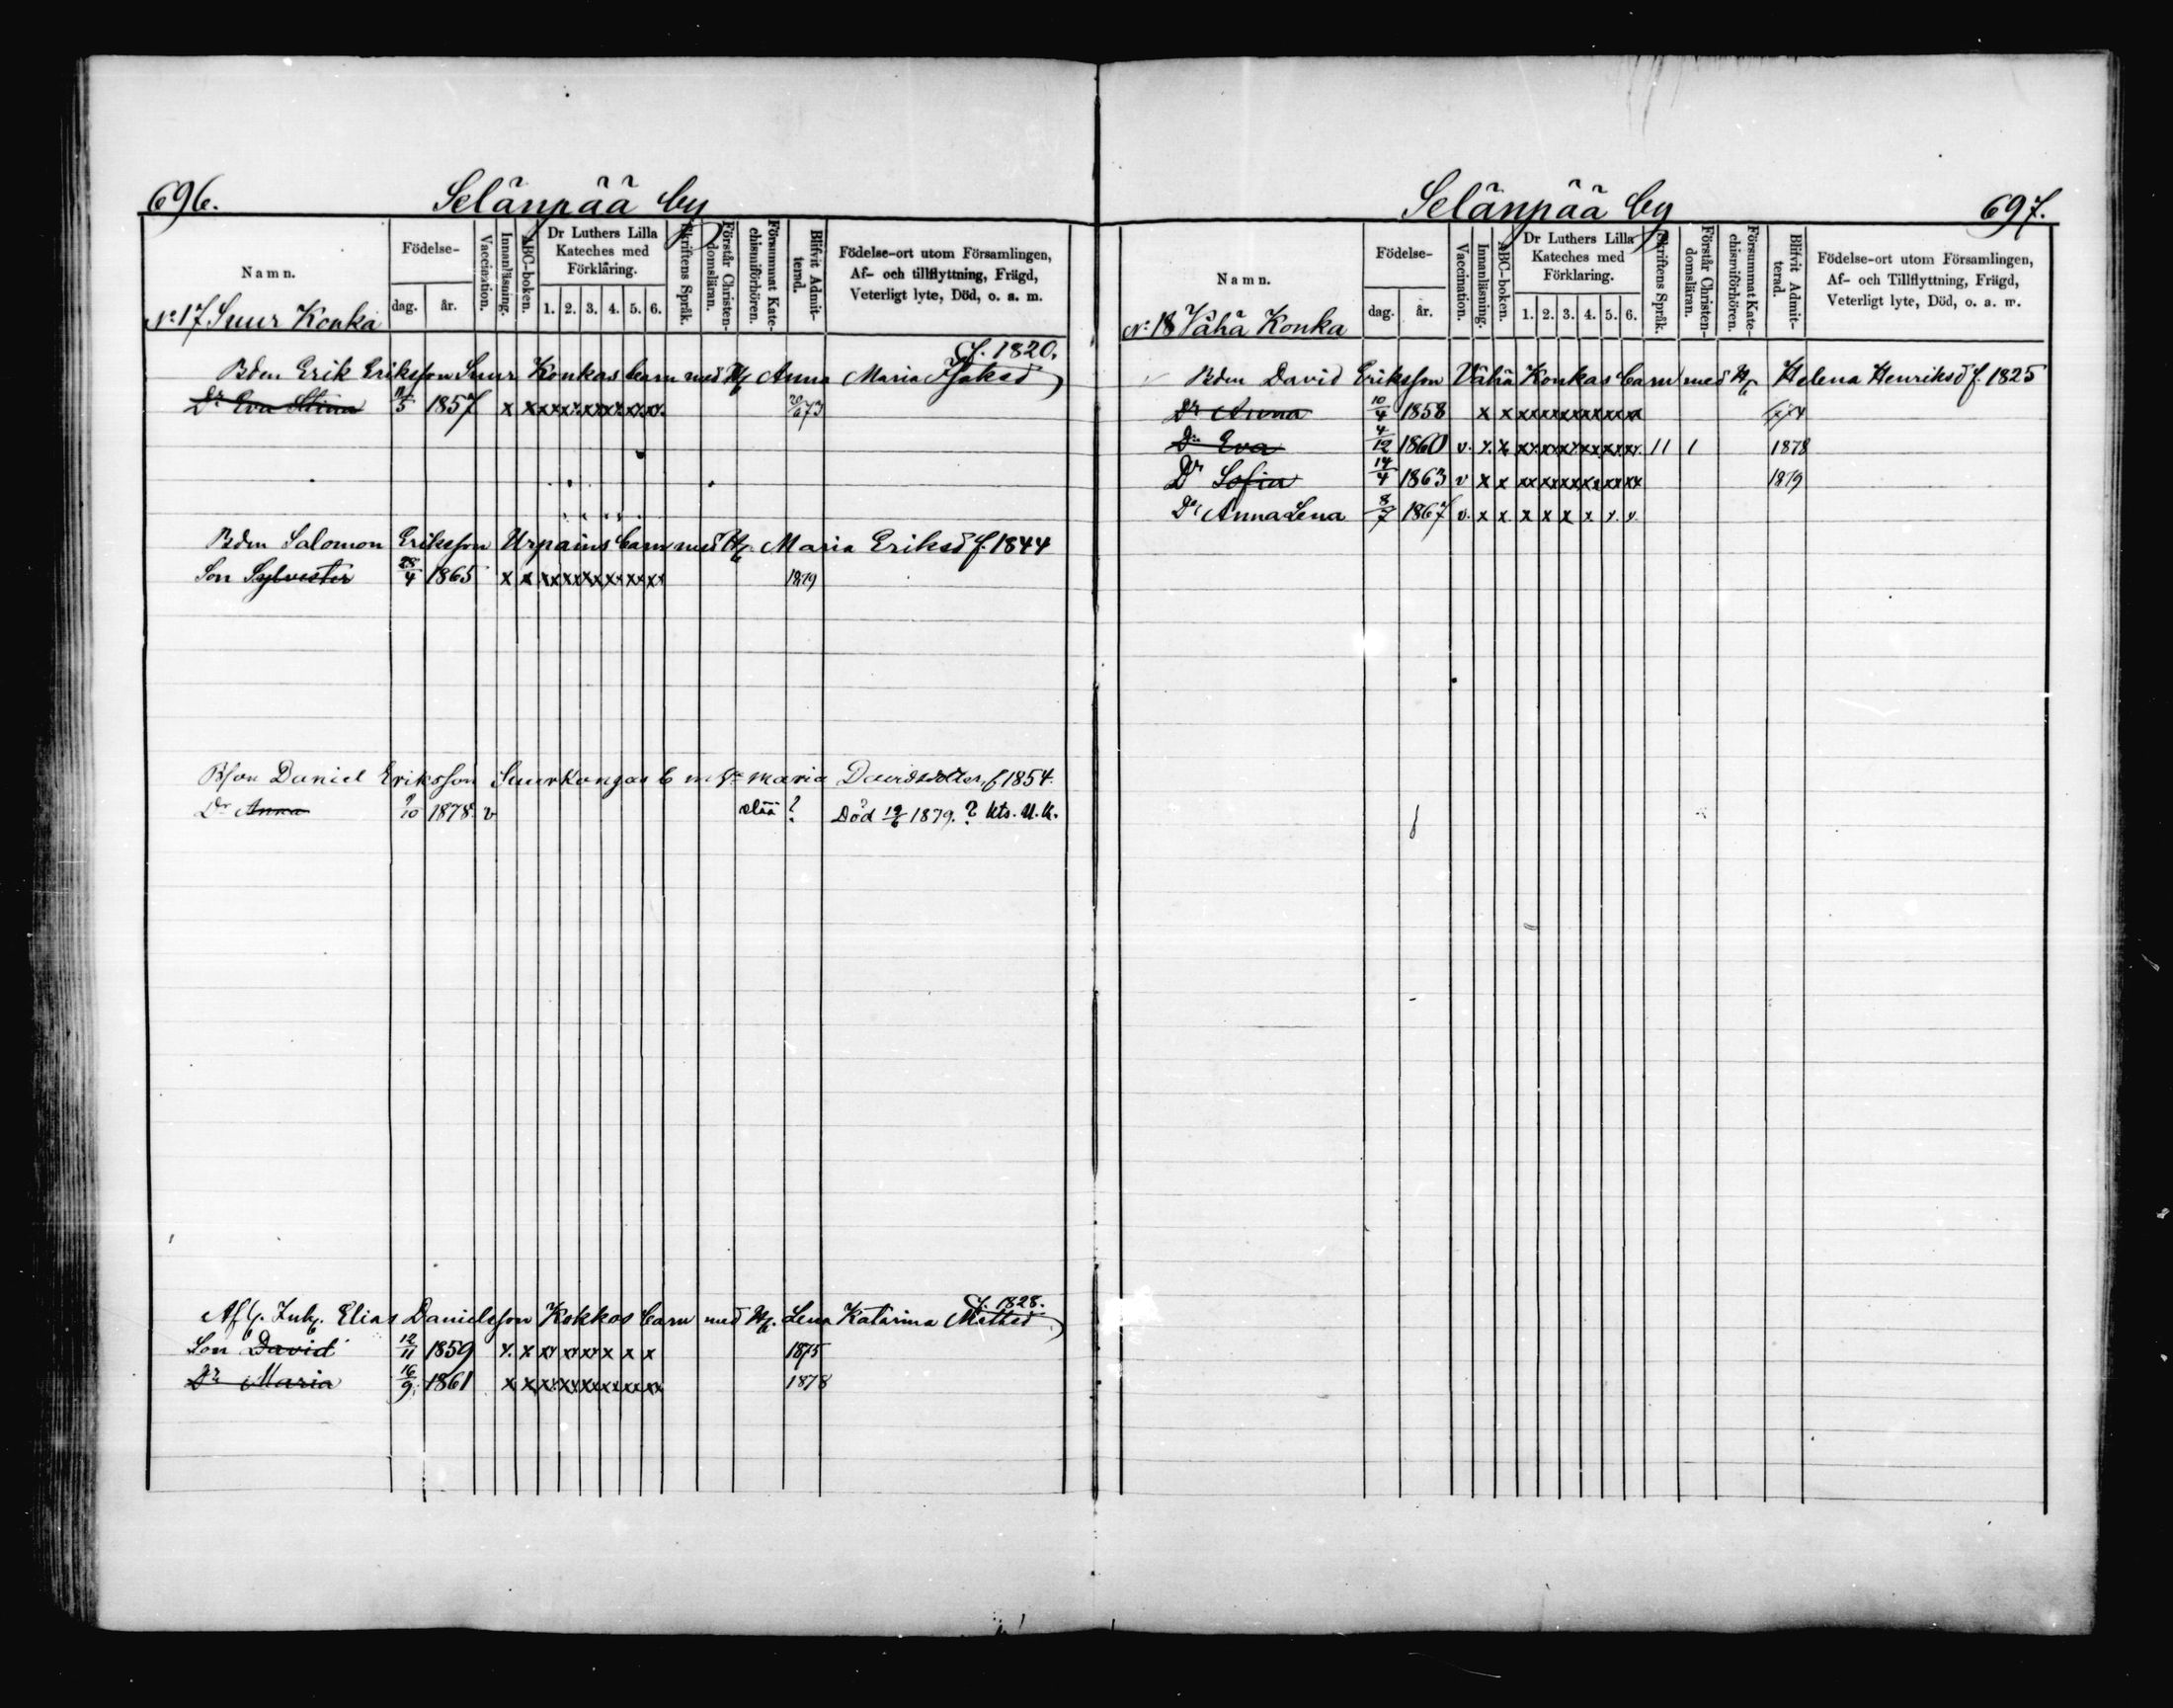 696. Selänpää by
Namn. Födelse- dag. år. Vaccination. Innanläsning. ABC-boken. Dr Luthers Lilla Kateches med Förklaring. 1. 2. 3. 4. 5. 6. Skriftens Språk. Förstår Christendomsläran. Försummat Katechismiförhören. Blifvit Admitterad. Födelse-ort utom Församlingen, Af- och tillflyttning, Frägd, Veterligt lyte, Död, o. a. m.
No 17 Suur Konka
f. 1820.
Bden Erik Eriksson Suur Konkas barn med Hu Anna Maria
Dr Eva Stina 5 1857 x x xx xx xx xx xx xx 73
Bden Salomon Eriksson Urpains barn med Hu Maria Eriksd f. 1844
Son Sylvester 28/4 1865 x x xx xx xx xx xx xx 1879
Bson Daniel Eriksson Suurkongas b m Maria Davidsdotter, f 1854.
Dr Anna 9/10 1878 v elää ? Död 19/6 1879. ? kts. U. K.
f. 1828.
Elias Danielsson Kokkos barn med Hu. Lena Katarina Mattsd
Son David 12/11 1859 x x xx xx xx x x x 1875
Dr Maria 16/9 1861 x x xx xx xx xx xx xx 1878
Selänpää by 697.
Namn. Födelse- dag. år. Vaccination. Innanläsning. ABC-boken. Dr Luthers Lilla Kateches med Förklaring. 1. 2. 3. 4. 5. 6. Skriftens Språk. Förstår Christendomsläran. Försummat Katechismiförhören. Blifvit Admitterad. Födelse-ort utom Församlingen, Af- och Tillflyttning, Frägd, Veterligt lyte, Död, o. a. m.
No 18 Vähä Konka
Bden David Eriksson Vähä Konkas barn med Hu Helena Henriksd f. 1825
Dr Anna 10/4 1858 x x xx xx xx xx xx xx
Dr Eva 4/12 1860 v. x. x xx xx xx xx xx xx 11 1 1878
Dr Sofia 14/4 1863 v x x xx xx xx xx xx xx 1879
Dr Anna Lena 8/7 1867 v. x x x x x x v. v.